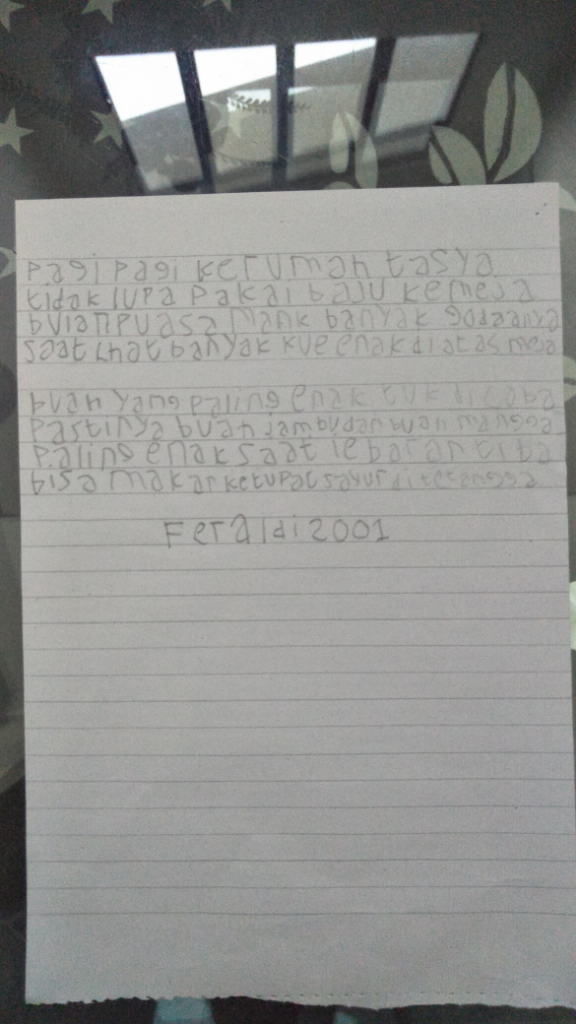 Pagi Pagi kerumah tasya
tidak lupa Pakai baju kemeja
bulan Puasa Mank banyak godaanya
saat lhat banyak kue enak di atas meja
buah yang paling enak tuk di coba
Pastinya buah jambu dan buah mangga
Paling enak saat lebaran kita
bisa makan ketupat sayur di tetangga
Feraldi2001